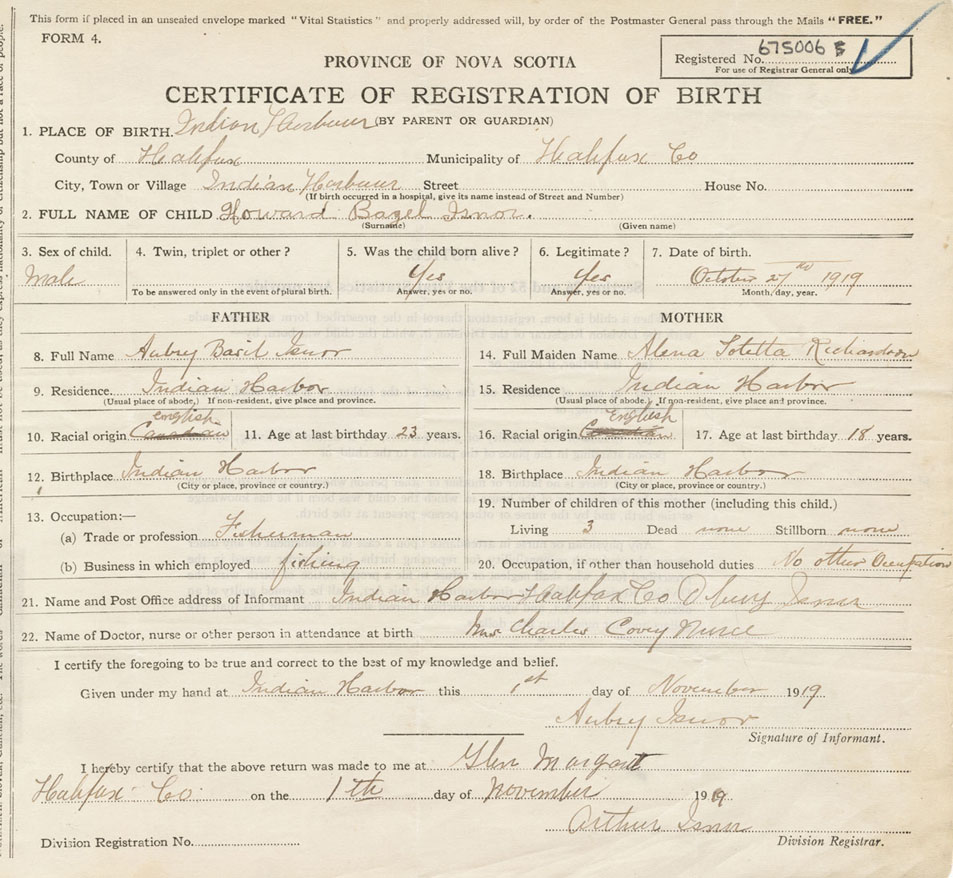 This form if placed in an unsealed envelope marked "Vital Statistics" and properly addressed will, by order of the Postmaster General pass through the Mails "FREE."
FORM 4.
Registered No. 675006
For use of Registrar General only
PROVINCE OF NOVA SCOTIA
CERTIFICATE OF REGISTRATION OF BIRTH
(BY PARENT OR GUARDIAN)
1. PLACE OF BIRTH. Indian Harbour
County of Halifax Municipality of Halifax Co
City, Town or Village Indian Harbour Street House No.
(If birth occurred in a hospital, give its name instead of Street and Number)
2. FULL NAME OF CHILD Howard Bazel Isnor.
(Surname) (Given name)
3. Sex of child. 4. Twin, triplet or other? 5. Was the child born alive? 6. Legitimate? 7. Date of birth.
Male Yes Yes October 27 1919
To be answered only in the event of plural birth. Answer, yes or no. Answer, yes or no. Month/day, year.
FATHER MOTHER
8. Full Name Aubry Basil Isnor 14. Full Maiden Name Alena Richardson
9. Residence. Indian Harbor 15. Residence Indian Harbor
(Usual place of abode.) If non-resident, give place and province. (Usual place of abode.) If non-resident, give place and province.
english english
10. Racial origin Canadian 11. Age at last birthday 23 years. 16. Racial origin Canadian 17. Age at last birthday 18 years.
12. Birthplace Indian Harbor 18. Birthplace Indian Harbor
(City or place, province or country.) (City or place, province or country.)
13. Occupation:— 19. Number of children of this mother (including this child.)
(a) Trade or profession Fisherman Living 3 Dead none Stillborn none
(b) Business in which employed fishing 20. Occupation, if other than household duties No other Occupation
21. Name and Post Office address of Informant Indian Harbor Halifax Co Isnor
22. Name of Doctor, nurse or other person in attendance at birth Mrs Charles Covey Nurse
I certify the foregoing to be true and correct to the best of my knowledge and belief.
Given under my hand at Indian Harbor this 1st day of November 1919
Aubry Isnor
Signature of Informant.
I hereby certify that the above return was made to me at Glen Margart
Halifax Co. on the 1th day of November 1919
Arthur Isnor
Division Registration No. Division Registrar.